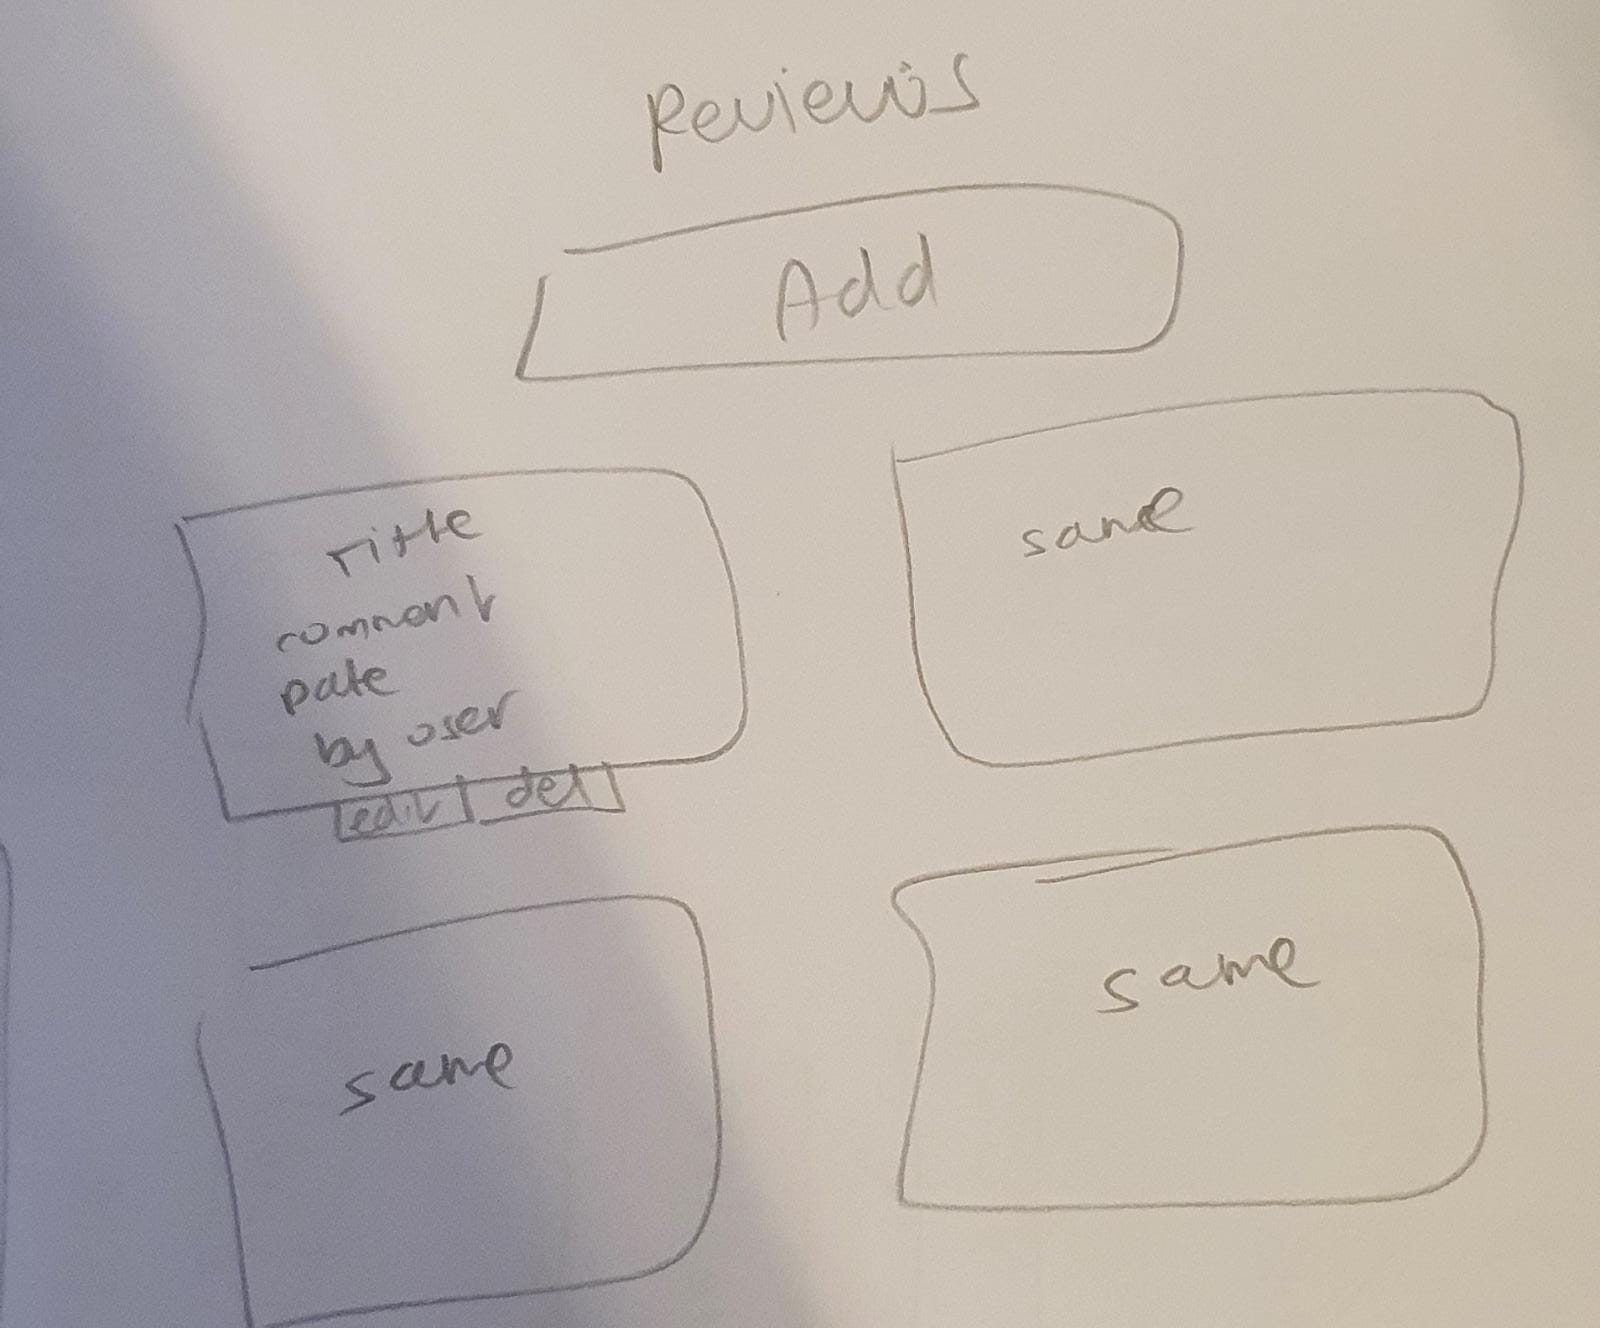 Reviews
Add
Title
comment
Date
by user
edit del
same
same
same